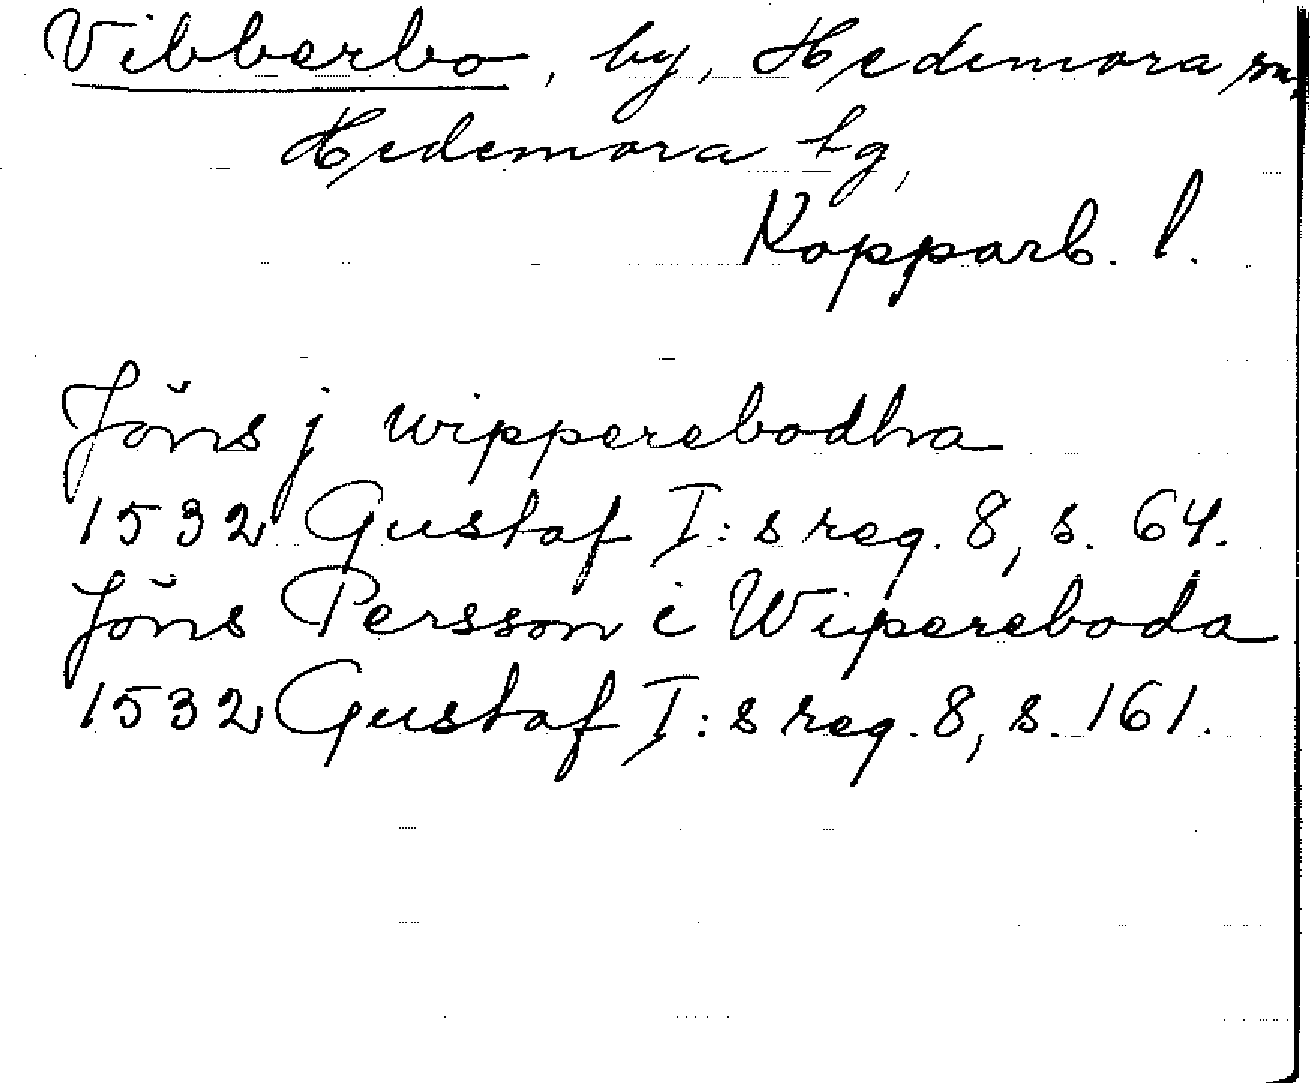 Vibberbo, by, Hedemora sn,
Hedemora tg,
Kopparb. l.
Jöns j wipperebodha
1532 Gustaf I:s reg. 8, s. 64.
Jöns Persson i Wipereboda
1532 Gustaf I:s reg. 8, s. 161.